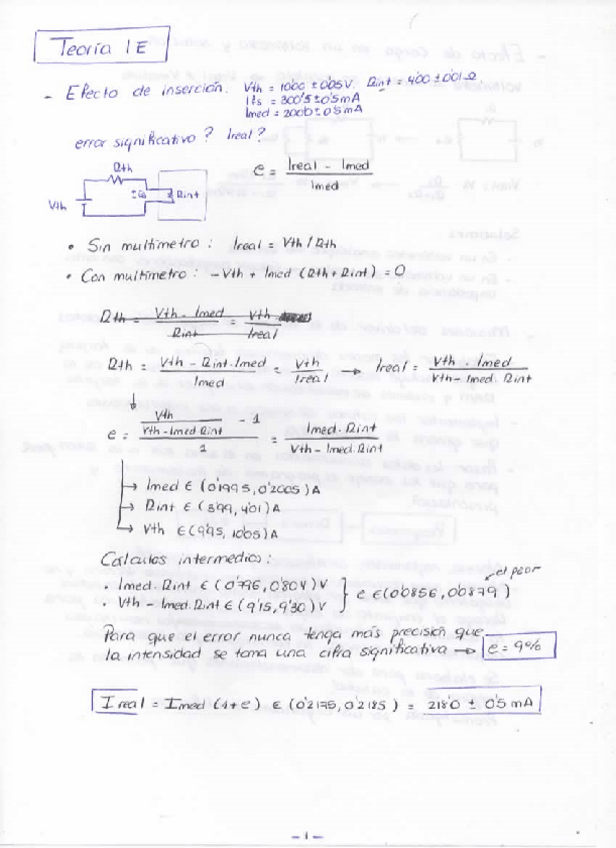 Teoría 1E
- Efecto de inserción. Vth = 10'00 ± 0'05 V. Ωint = 4'00 ± 0'01 Ω
Ifs = 300'5 ± 0'5 mA
Imed = 200'0 ± 0'5 mA
error significativo? Ireal?
Ωth
Vth
Ωint
e = Ireal - Imed / Imed
• Sin multimetro: Ireal = Vth / Ωth
• Con multimetro: -Vth + Imed (Ωth + Ωint) = 0
Ωth = Vth - Imed / Ωint = Vth / Ireal
Ωth = Vth - Ωint · Imed / Imed = Vth / Ireal → Ireal = Vth · Imed / Vth - Imed · Ωint
e = Vth / Vth - Imed Ωint - 1 / 1 = Imed · Ωint / Vth - Imed · Ωint
→ Imed ∈ (0'1995, 0'2005) A
→ Ωint ∈ (3'99, 4'01) Ω
→ Vth ∈ (9'95, 10'05) A
Calculos intermedios:
• Imed · Ωint ∈ (0'796, 0'804) V
• Vth - Imed · Ωint ∈ (9'15, 9'30) V } e ∈ (0'0856, 0'0879)
el peor
Para que el error nunca tenga más precisión que
la intensidad se toma una cifra significativa → e = 9%
Ireal = Imed (1+e) ∈ (0'2175, 0'2185) = 218'0 ± 0'5 mA
- 1 -